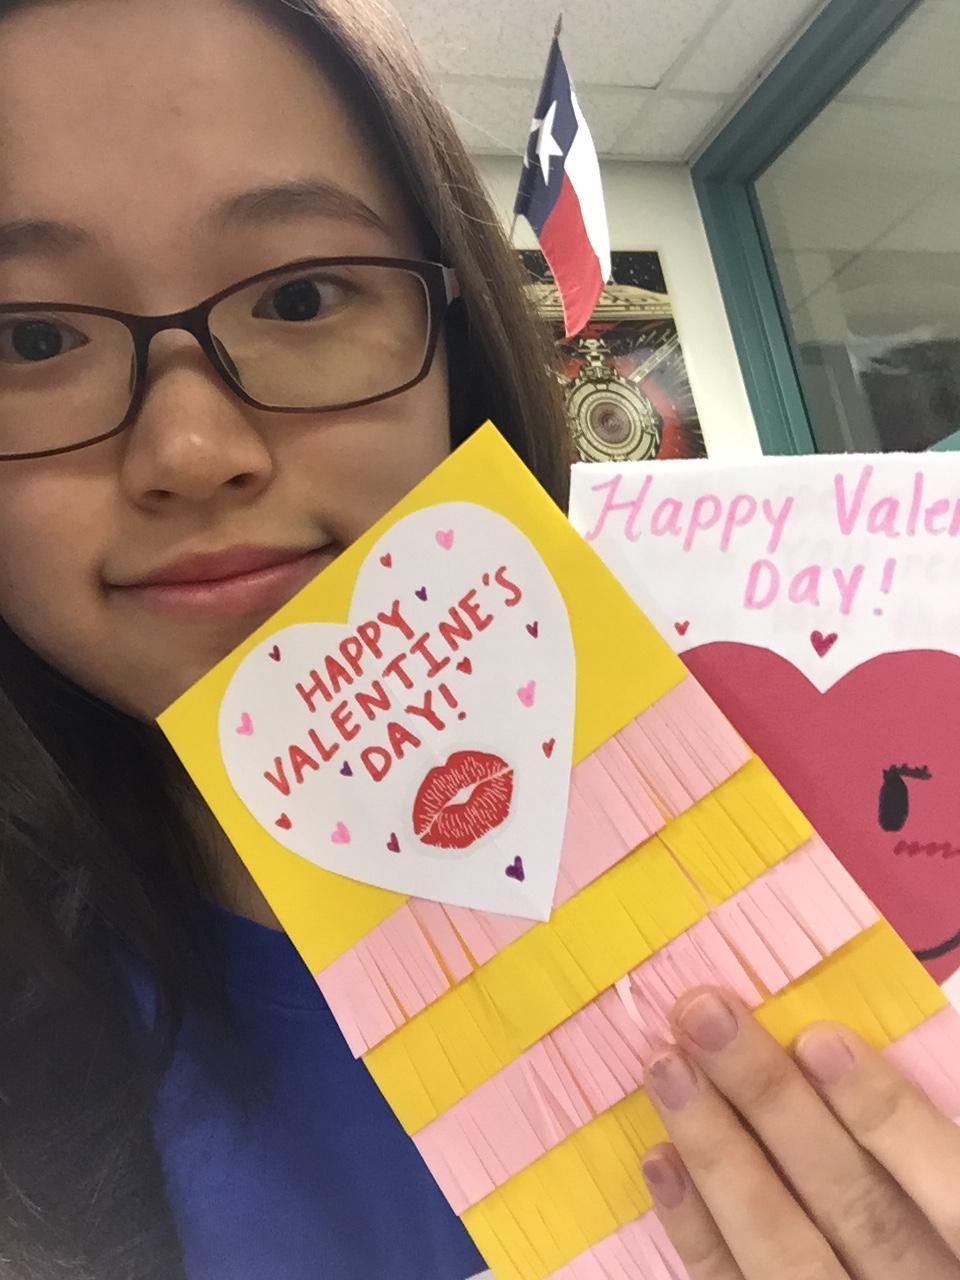 HAPPY
VALENTINE'S
DAY!
Happy Valen
Day!